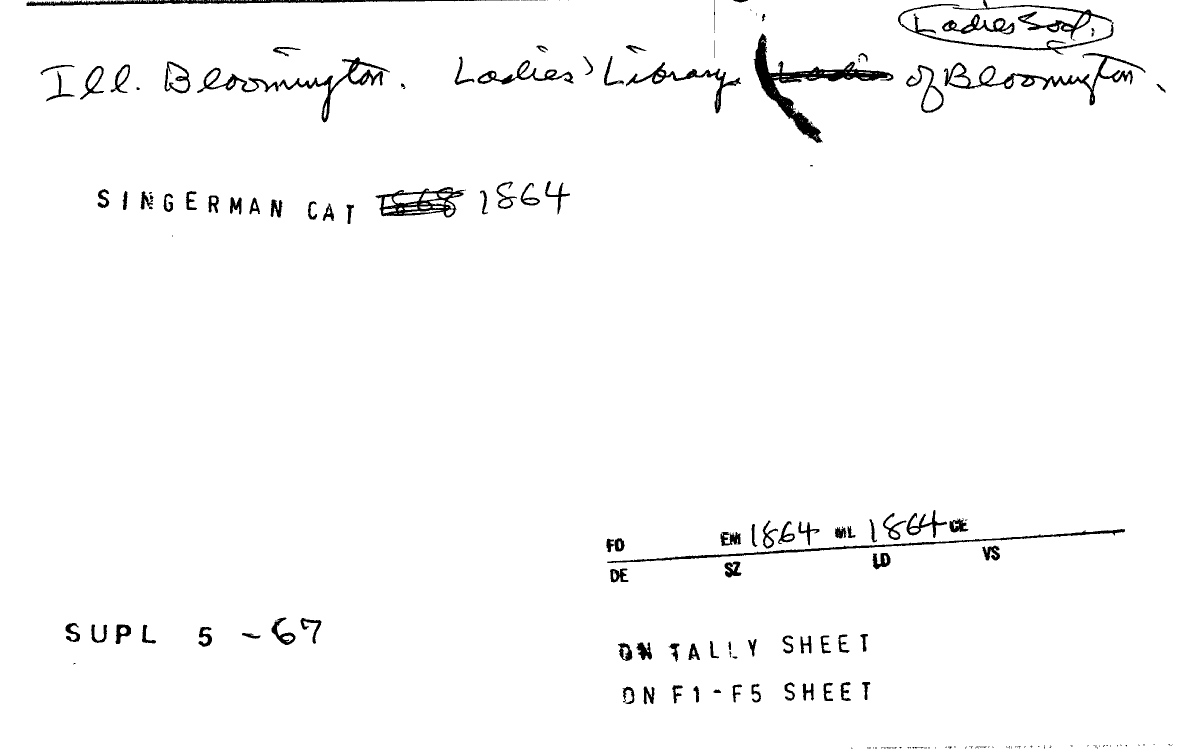 Ladies Soc.
Ill. Bloomington. Ladies' Library. Ladies of Bloomington.
SINGERMAN CAT 1868 1864
FO EM 1864 ML 1864 CE
DE SZ LD VS
SUPL 5 - 67
ON TALLY SHEET
ON F1-F5 SHEET